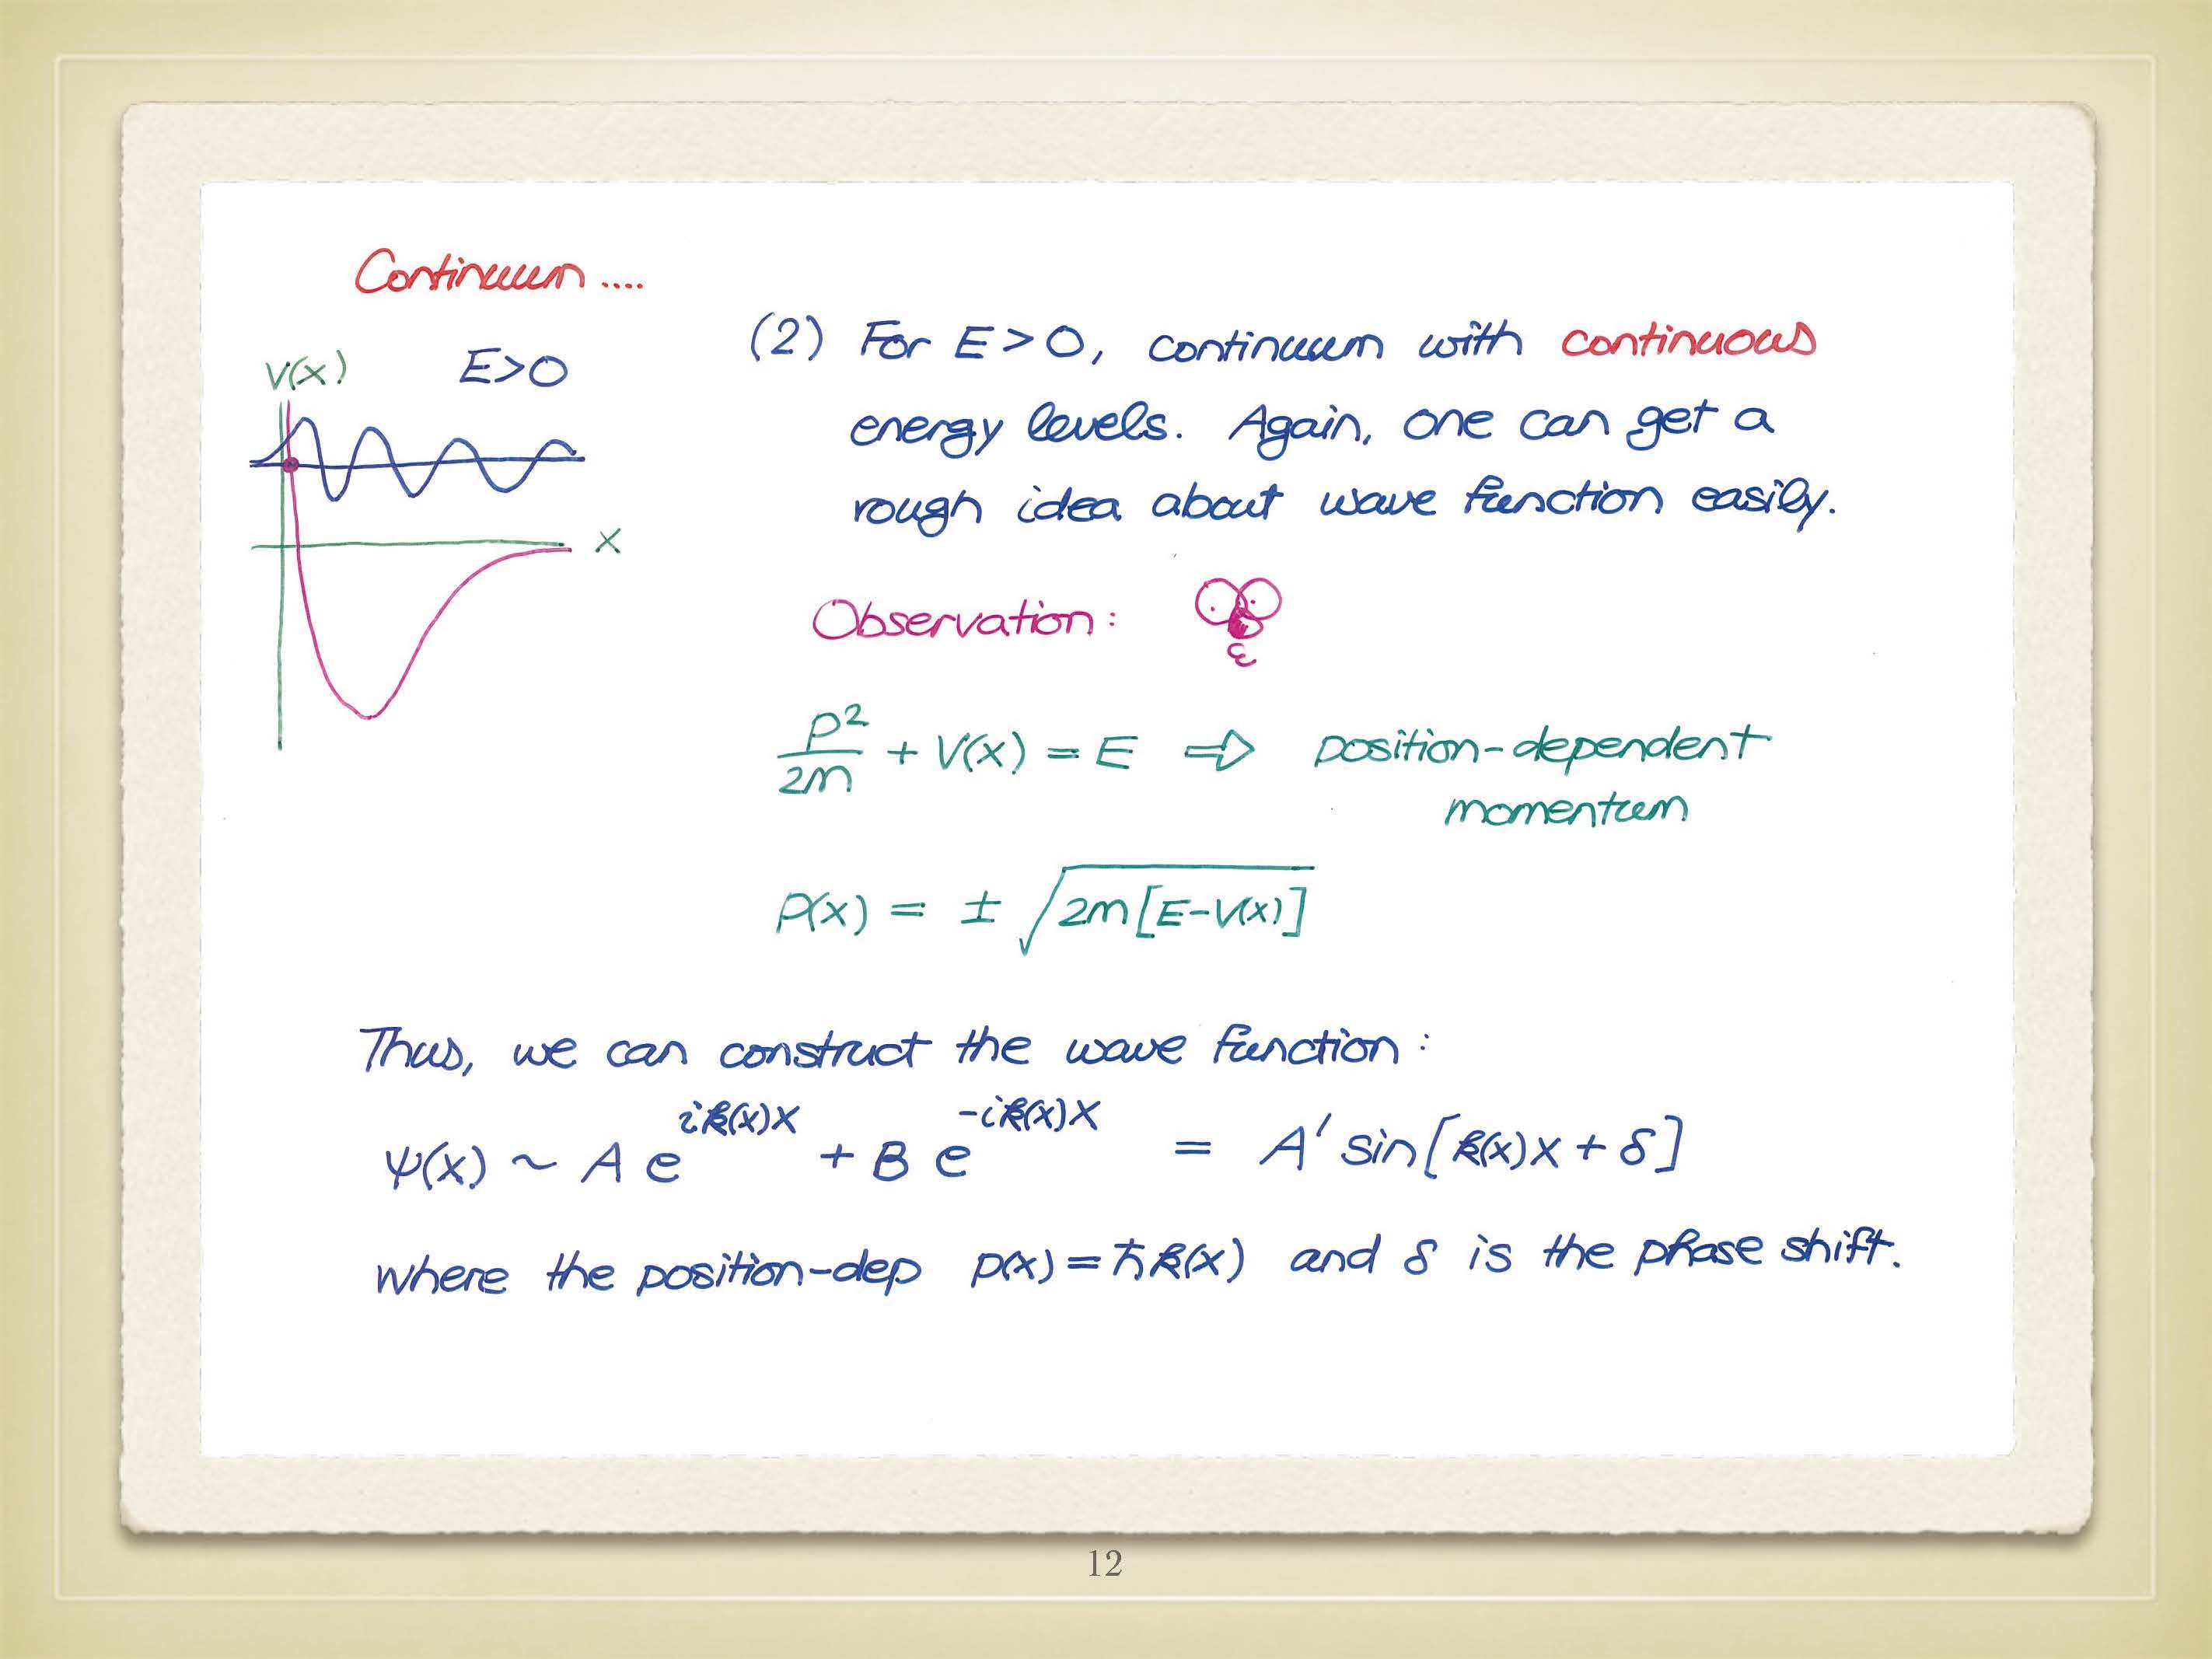 Continuum ....
V(x) E>0
x
(2) For E > 0, continuum with continuous
energy levels. Again, one can get a
rough idea about wave function easily.
Observation:
p²/2m + V(x) = E ⇒ position-dependent
momentum
p(x) = ± √(2m[E-V(x)])
Thus, we can construct the wave function:
ψ(x) ~ A e^{ik(x)x} + B e^{-ik(x)x} = A' sin[k(x)x + δ]
where the position-dep p(x) = ħk(x) and δ is the phase shift.
12